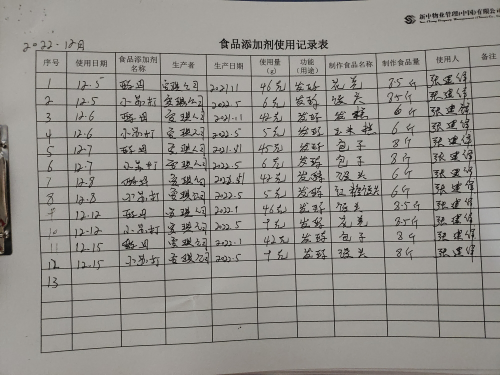 新中物业管理(中国)有限公司
2022-12月
食品添加剂使用记录表
序号 使用日期 食品添加剂名称 生产者 生产日期 使用量(g) 功能(用途) 制作食品名称 制作食品量 使用人 备注
1 12.5 酵母 安琪公司 46克 发酵 花卷 8.5斤 张建锋
2 12.5 小苏打 安琪公司 2022.5 6克 发酵 馒头 8.5斤 张建锋
3 12.6 酵母 安琪公司 42克 发酵 发糕 6斤 张建锋
4 12.6 小苏打 安琪公司 2022.5 5克 发酵 玉米糕 6斤 张建锋
5 12.7 酵母 安琪公司 45克 发酵 包子 8斤 张建锋
6 12.7 小苏打 安琪公司 2022.5 6克 发酵 包子 8斤 张建锋
7 12.8 酵母 安琪公司 42克 发酵 馒头 6斤 张建锋
8 12.8 小苏打 安琪公司 2022.5 5克 发酵 6斤 张建锋
9 12.12 酵母 安琪公司 2022.1 46克 发酵 馒头 8.5斤 张建锋
10 12.12 小苏打 安琪公司 2022.5 7克 发酵 花卷 8.5斤 张建锋
11 12.15 酵母 安琪公司 2022.1 42克 发酵 包子 8斤 张建锋
12 12.15 小苏打 安琪公司 2022.5 7克 发酵 馒头 8斤 张建锋
13